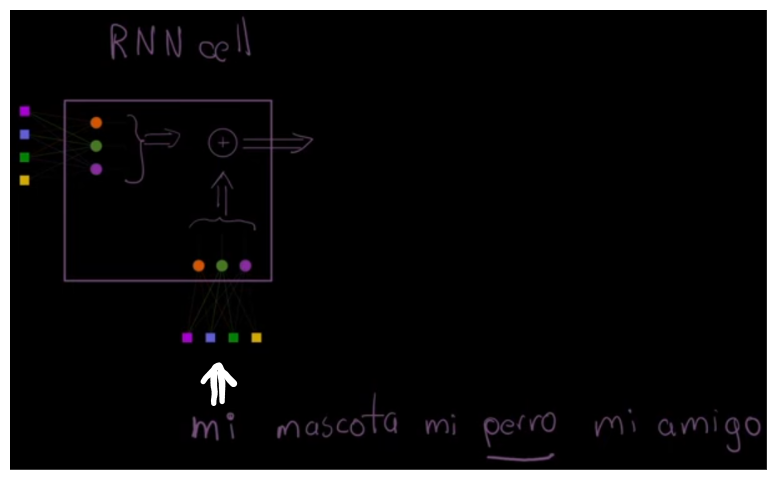 RNN cell
mi mascota mi perro mi amigo